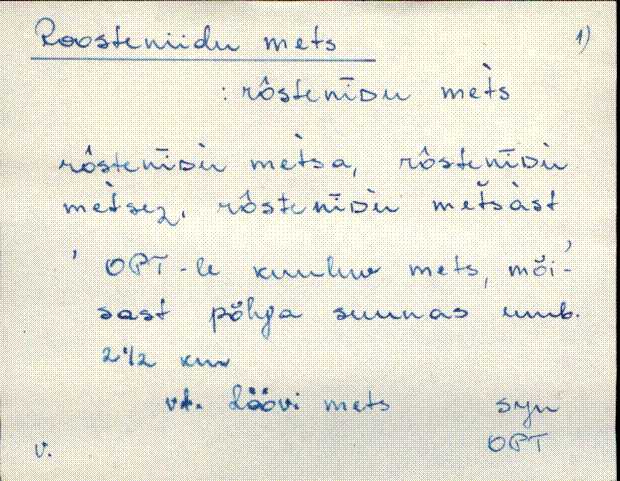 Roosteniidu mets 1)
: rôstenīᴅu mets
rôstenīᴅu metsa, rôstenīᴅu
metsez, rôstenīᴅu metsast
' OPT-le kuuluv mets, mõi-
sast põhja suunas umb.
2 1/2 km '
vt. Löövi mets syn
v. OPT